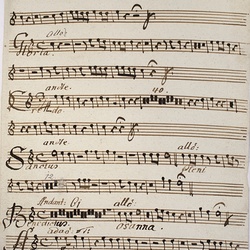 allo:
Gloria.
andte. 40.
Credo
andte allo:
Sanctus pleni
12
Andant: 61 allo:
Benedictus. osanna.